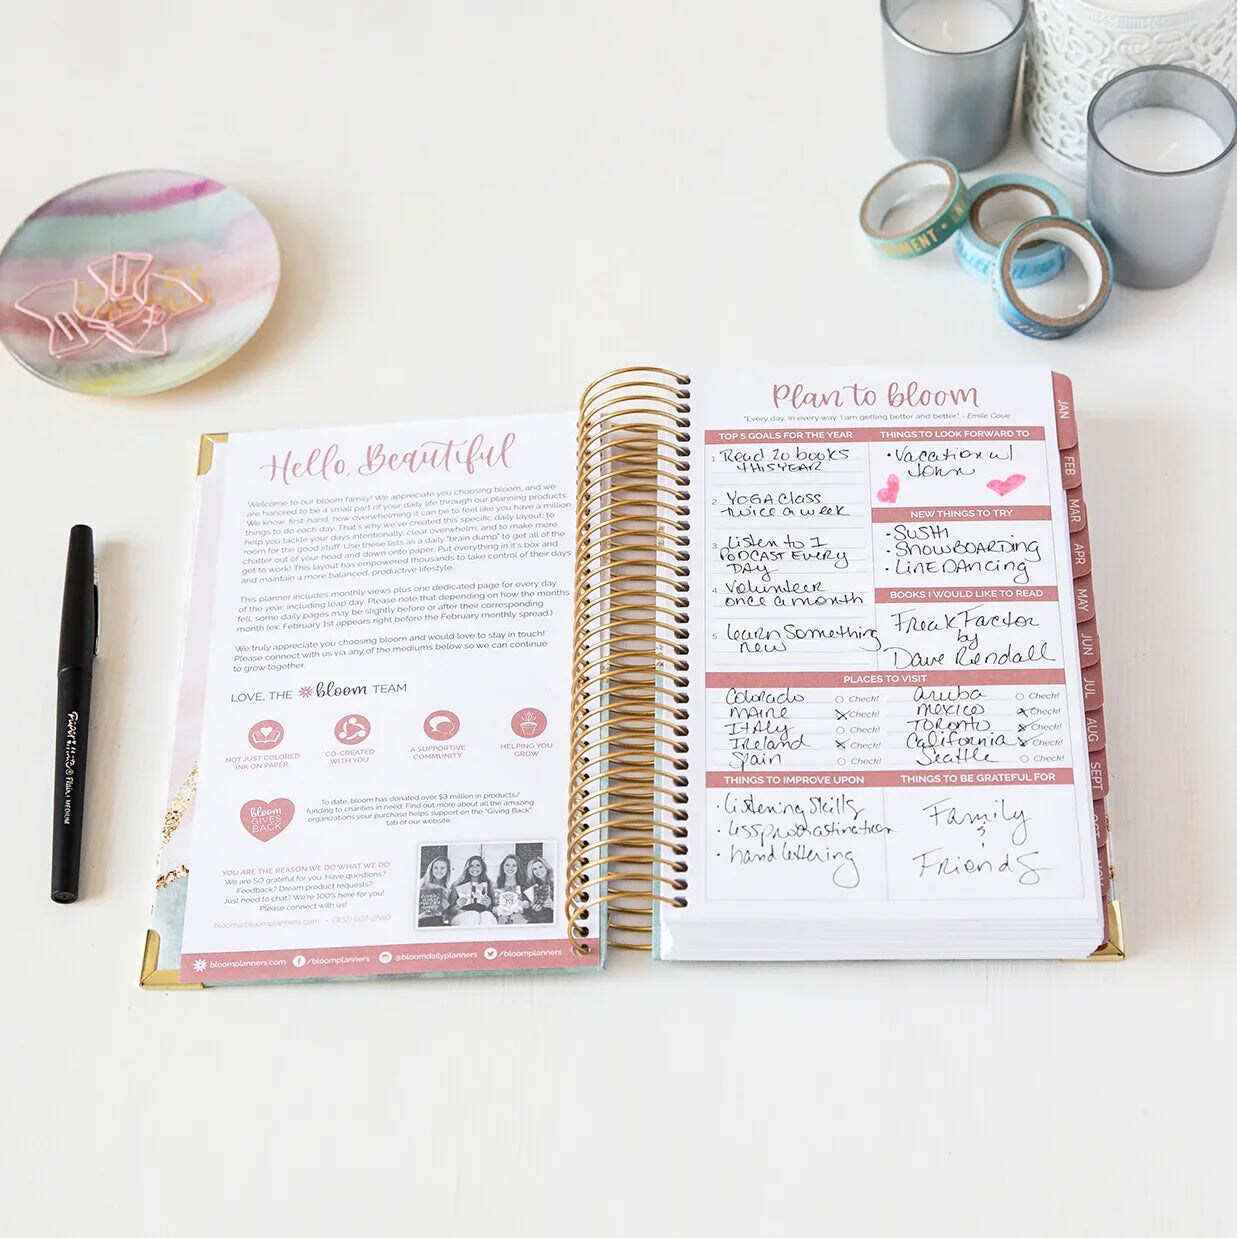 Hello, Beautiful
Welcome to our bloom family! We appreciate you choosing bloom, and we
are honored to be a small part of your daily life through our planning products.
We know, first-hand, how overwhelming it can be to feel like you have a million
things to do each day. That's why we've created this specific daily layout: to
help you tackle your days intentionally, clear overwhelm, and to make more
room for the good stuff. Use these lists as a daily "brain dump" to get all of the
chatter out of your head and down onto paper. Put everything in it's box and
get to work! This layout has empowered thousands to take control of their days
and maintain a more balanced, productive lifestyle.
This planner includes monthly views plus one dedicated page for every day
of the year, including leap day. Please note that depending on how the months
fell, some daily pages may be slightly before or after their corresponding
month (ex: February 1st appears right before the February monthly spread.)
We truly appreciate you choosing bloom and would love to stay in touch!
Please connect with us via any of the mediums below so we can continue
to grow together.
LOVE, THE bloom TEAM
NOT JUST COLORED
INK ON PAPER
CO-CREATED
WITH YOU
A SUPPORTIVE
COMMUNITY
HELPING YOU
GROW
bloom
GIVES
BACK
To date, bloom has donated over $3 million in products/
funding to charities in need. Find out more about all the amazing
organizations your purchase helps support on the "Giving Back"
tab of our website
YOU ARE THE REASON WE DO WHAT WE DO
We are SO grateful for you. Have questions?
Feedback? Dream product requests?
Just need to chat? We're 100% here for you!
Please connect with us!
bloom@bloomplanners.com • (302) 607-2580
bloomplanners.com /bloomplanners @bloomdailyplanners /bloomplanners
Plan to bloom
"Every day, in every way, I am getting better and better" - Emile Coue
TOP 5 GOALS FOR THE YEAR
1 Read 20 books
THIS YEAR
2 YOGA Class
twice a week
3 Listen to 1
PODCAST EVERY
DAY
4 Volunteer
once a month
5 learn Something
new
THINGS TO LOOK FORWARD TO
• Vacation w/
John
NEW THINGS TO TRY
• SUSHI
• SNOWBOARDING
• LINE DANCING
BOOKS I WOULD LIKE TO READ
Freak Factor
by
Dave Rendall
PLACES TO VISIT
Colorado Check! Aruba Check!
MAINE Check! MEXICO Check!
ITALY Check! TORONTO Check!
Ireland Check! California Check!
Spain Check! Seattle Check!
THINGS TO IMPROVE UPON
• Listening Skills
• less procrastination
• hand lettering
THINGS TO BE GRATEFUL FOR
Family
&
Friends
JAN
FEB
MAR
APR
MAY
JUN
JUL
AUG
SEPT
OCT
NOV
Flair MEDIUM